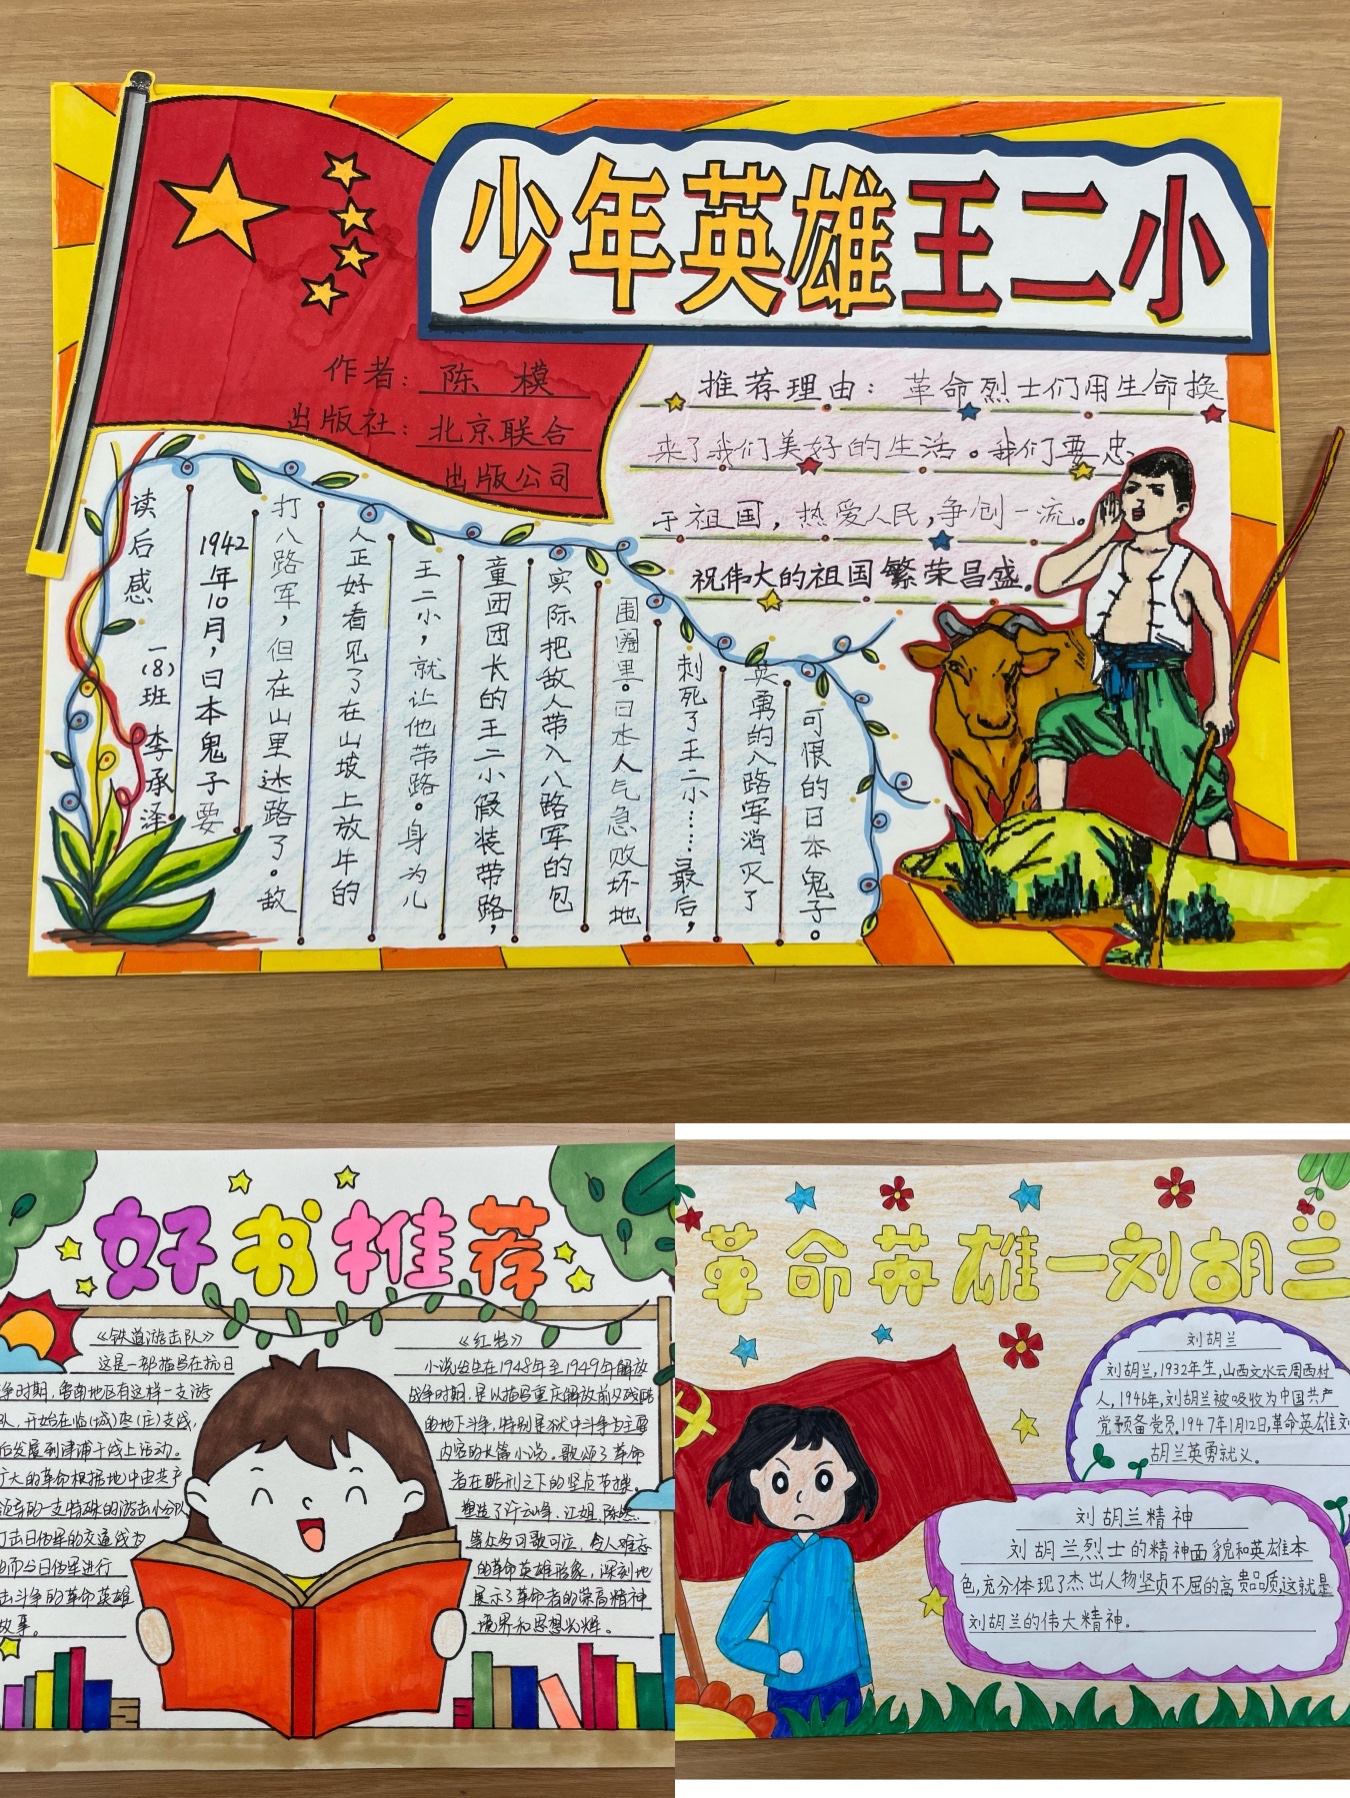 少年英雄王二小
作者：陈模
出版社：北京联合
出版公司
推荐理由：革命烈士们用生命换
来了我们美好的生活。我们要忠
于祖国，热爱人民，争创一流。
祝伟大的祖国繁荣昌盛。
读后感
一(8)班 李承泽
1942年10月，日本鬼子要
打八路军，但在山里迷路了。敌
人正好看见了在山坡上放牛的
王二小，就让他带路。身为儿
童团团长的王二小假装带路，
实际把敌人带入八路军的包
围圈里。日本人气急败坏地
刺死了王二小……最后，
英勇的八路军消灭了
可恨的日本鬼子。
好书推荐
《铁道游击队》
这是一部描写在抗日
争时期，鲁南地区有这样一支游
队，开始在临(城)枣(庄)支线，
后发展到津浦干线上活动。
广大的革命根据地中由共产
领导的一支特殊的游击小分队
打击日伪军的交通线为
而与日伪军进行
击斗争的革命英雄
故事。
《红岩》
小说出生在1948年至1949年解放
战争时期，是以描写重庆解放前夕残酷
的地下斗争，特别是狱中斗争为主要
内容的长篇小说。歌颂了革命
者在酷刑之下的坚贞节操。
塑造了许云峰、江姐、陈然
等众多可歌可泣，令人难忘
的革命英雄形象，深刻地
展示了革命者的崇高精神
境界和思想光辉。
革命英雄一刘胡兰
刘胡兰
刘胡兰，1932年生，山西文水云周西村
人，1946年，刘胡兰被吸收为中国共产
党预备党员。1947年1月12日，革命英雄刘
胡兰英勇就义。
刘胡兰精神
刘胡兰烈士的精神面貌和英雄本
色，充分体现了杰出人物坚贞不屈的高贵品质，这就是
刘胡兰的伟大精神。